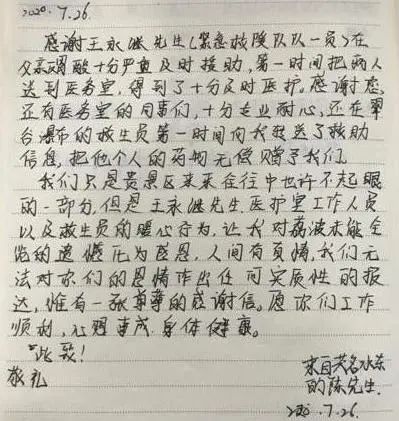 2020.7.26.
感谢王永继先生(紧急救援队队一员)在
父亲胃酸十分严重及时援助,第一时间把病人
送到医务室,得到了十分及时医护。感谢您,
还有医务室的同事们,十分专业耐心,还在翠
台瀑布的救生员第一时间向我发送了救助
信息,把他个人的药物无偿赠予我们。
我们只是贵景区来来往往中也许不起眼
的一部分,但是王永继先生.医护室工作人员
以及救生员的暖心行为,让我对荔波未能全
览的遗憾化为感恩,人间有真情,我们无
法对你们的恩情作出任何实质性的报
达,惟有一张单薄的感谢信。愿你们工作
顺利,心想事成,身体健康。
此致!
敬礼
来自茂名水东
的陈先生.
2020.7.26.